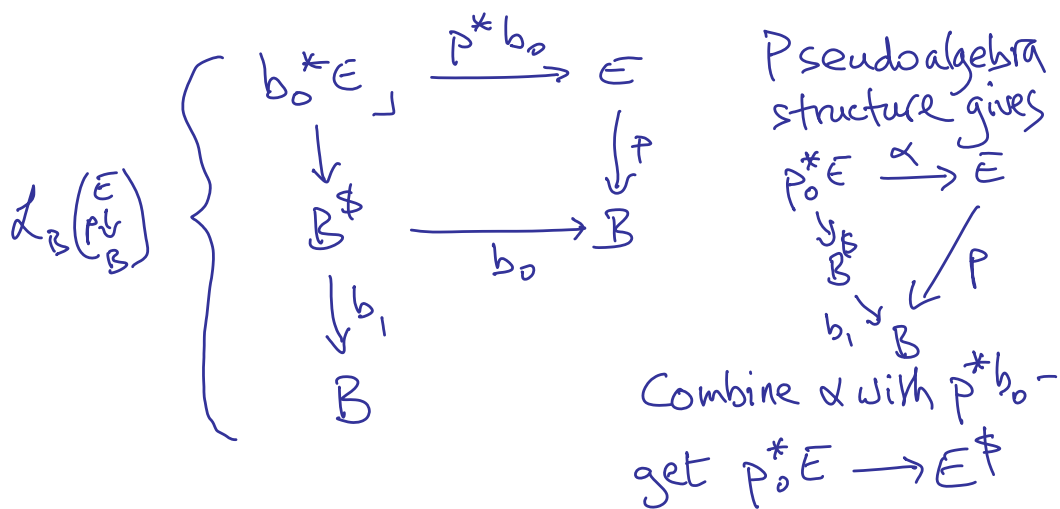 b₀*E ⌟ p*b₀ E
p
ℒ_B (E p↓ B)
B^$ b₀ B
b₁
B
Pseudoalgebra
structure gives
p₀*E α E
B^$ p
b₁ B
Combine α with p*b₀ -
get p₀*E → E^$